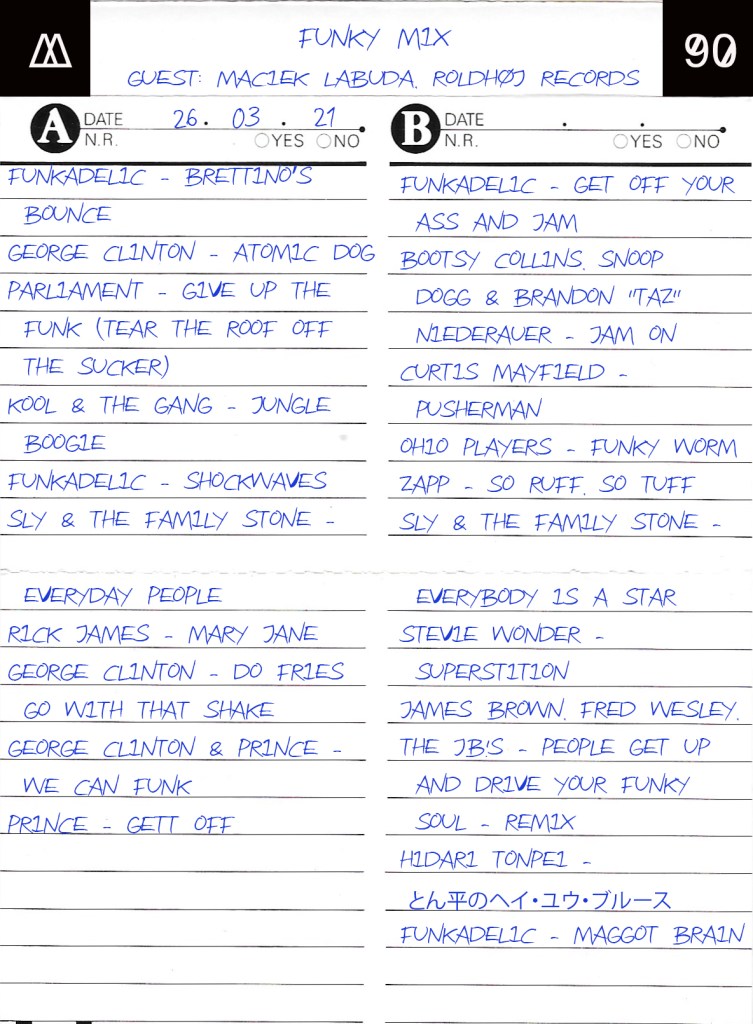 FUNKY MIX
90
GUEST: MACIEK LABUDA, ROLDHØJ RECORDS
A DATE 26. 03. 21
N.R. YES NO
FUNKADELIC - BRETTINO'S
BOUNCE
GEORGE CLINTON - ATOMIC DOG
PARLIAMENT - GIVE UP THE
FUNK (TEAR THE ROOF OFF
THE SUCKER)
KOOL & THE GANG - JUNGLE
BOOGIE
FUNKADELIC - SHOCKWAVES
SLY & THE FAMILY STONE -
EVERYDAY PEOPLE
RICK JAMES - MARY JANE
GEORGE CLINTON - DO FRIES
GO WITH THAT SHAKE
GEORGE CLINTON & PRINCE -
WE CAN FUNK
PRINCE - GETT OFF
B DATE . .
N.R. YES NO
FUNKADELIC - GET OFF YOUR
ASS AND JAM
BOOTSY COLLINS, SNOOP
DOGG & BRANDON "TAZ"
NIEDERAUER - JAM ON
CURTIS MAYFIELD -
PUSHERMAN
OHIO PLAYERS - FUNKY WORM
ZAPP - SO RUFF, SO TUFF
SLY & THE FAMILY STONE -
EVERYBODY IS A STAR
STEVIE WONDER -
SUPERSTITION
JAMES BROWN, FRED WESLEY,
THE JB'S - PEOPLE GET UP
AND DRIVE YOUR FUNKY
SOUL - REMIX
HIDARI TONPEI -
とん平のヘイ・ユウ・ブルース
FUNKADELIC - MAGGOT BRAIN